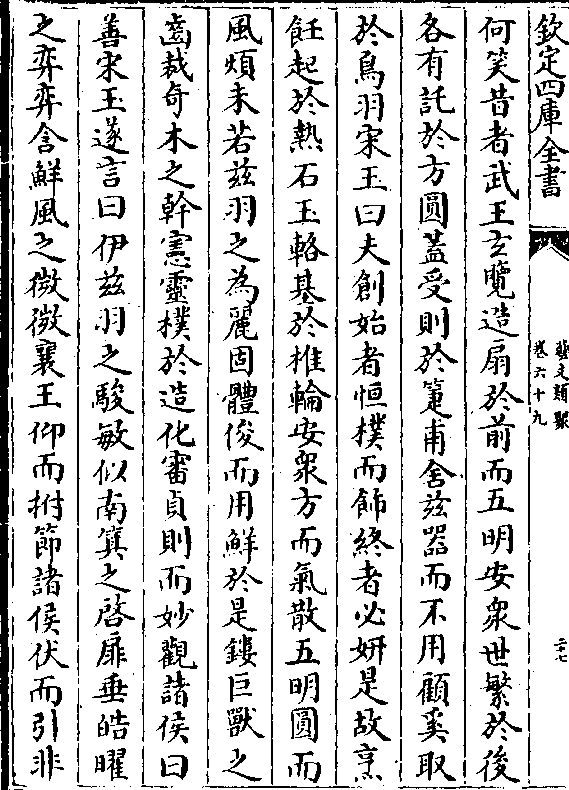 欽定四庫全書
藝文類聚
卷六十九
二十七
何笑昔者武王玄覽造扇於前而五明安衆世繁於後
各有託於方圓蓋受則於箑甫舍兹器而不用顧奚取
於鳥羽宋玉曰夫創始者恒樸而飾終者必妍是故烹
飪起於熱石玉輅基於椎輪安衆方而氣散五明圓而
風煩未若兹羽之為麗固體俊而用鮮於是鏤巨獸之
齒裁奇木之幹憲靈樸於造化審貞則而妙觀諸侯曰
善宋玉遂言曰伊兹羽之駿敏似南箕之啓扉垂皓曜
之弈弈含鮮風之微微襄王仰而拊節諸侯伏而引非